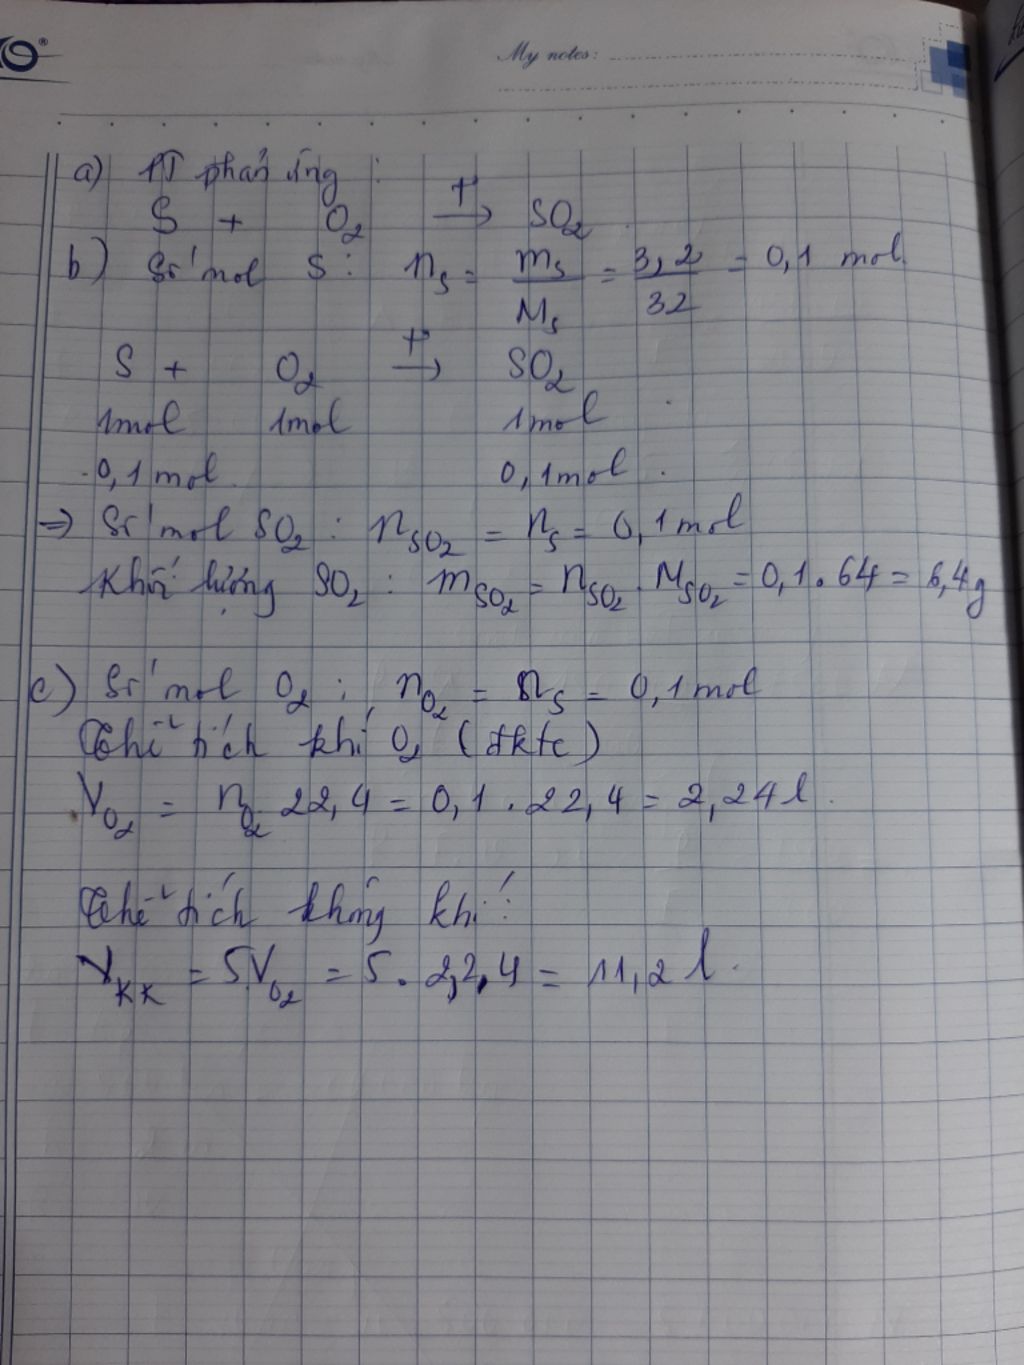 My notes:
a) PT phản ứng :
S + O₂ →(t°) SO₂
b) Số mol S : nₛ = mₛ/Mₛ = 3,2/32 = 0,1 mol
S + O₂ →(t°) SO₂
1mol 1mol 1mol
0,1 mol 0,1mol .
⇒ Số mol SO₂ : n_SO₂ = nₛ = 0,1 mol
Khối lượng SO₂ : m_SO₂ = n_SO₂ . M_SO₂ = 0,1 . 64 = 6,4g
c) Số mol O₂ : n_O₂ = nₛ = 0,1 mol
Thể tích khí O₂ (đktc)
V_O₂ = n_O₂ . 22,4 = 0,1 . 22,4 = 2,24 l .
Thể tích không khí :
V_KK = 5V_O₂ = 5 . 2,2,4 = 11,2 l .